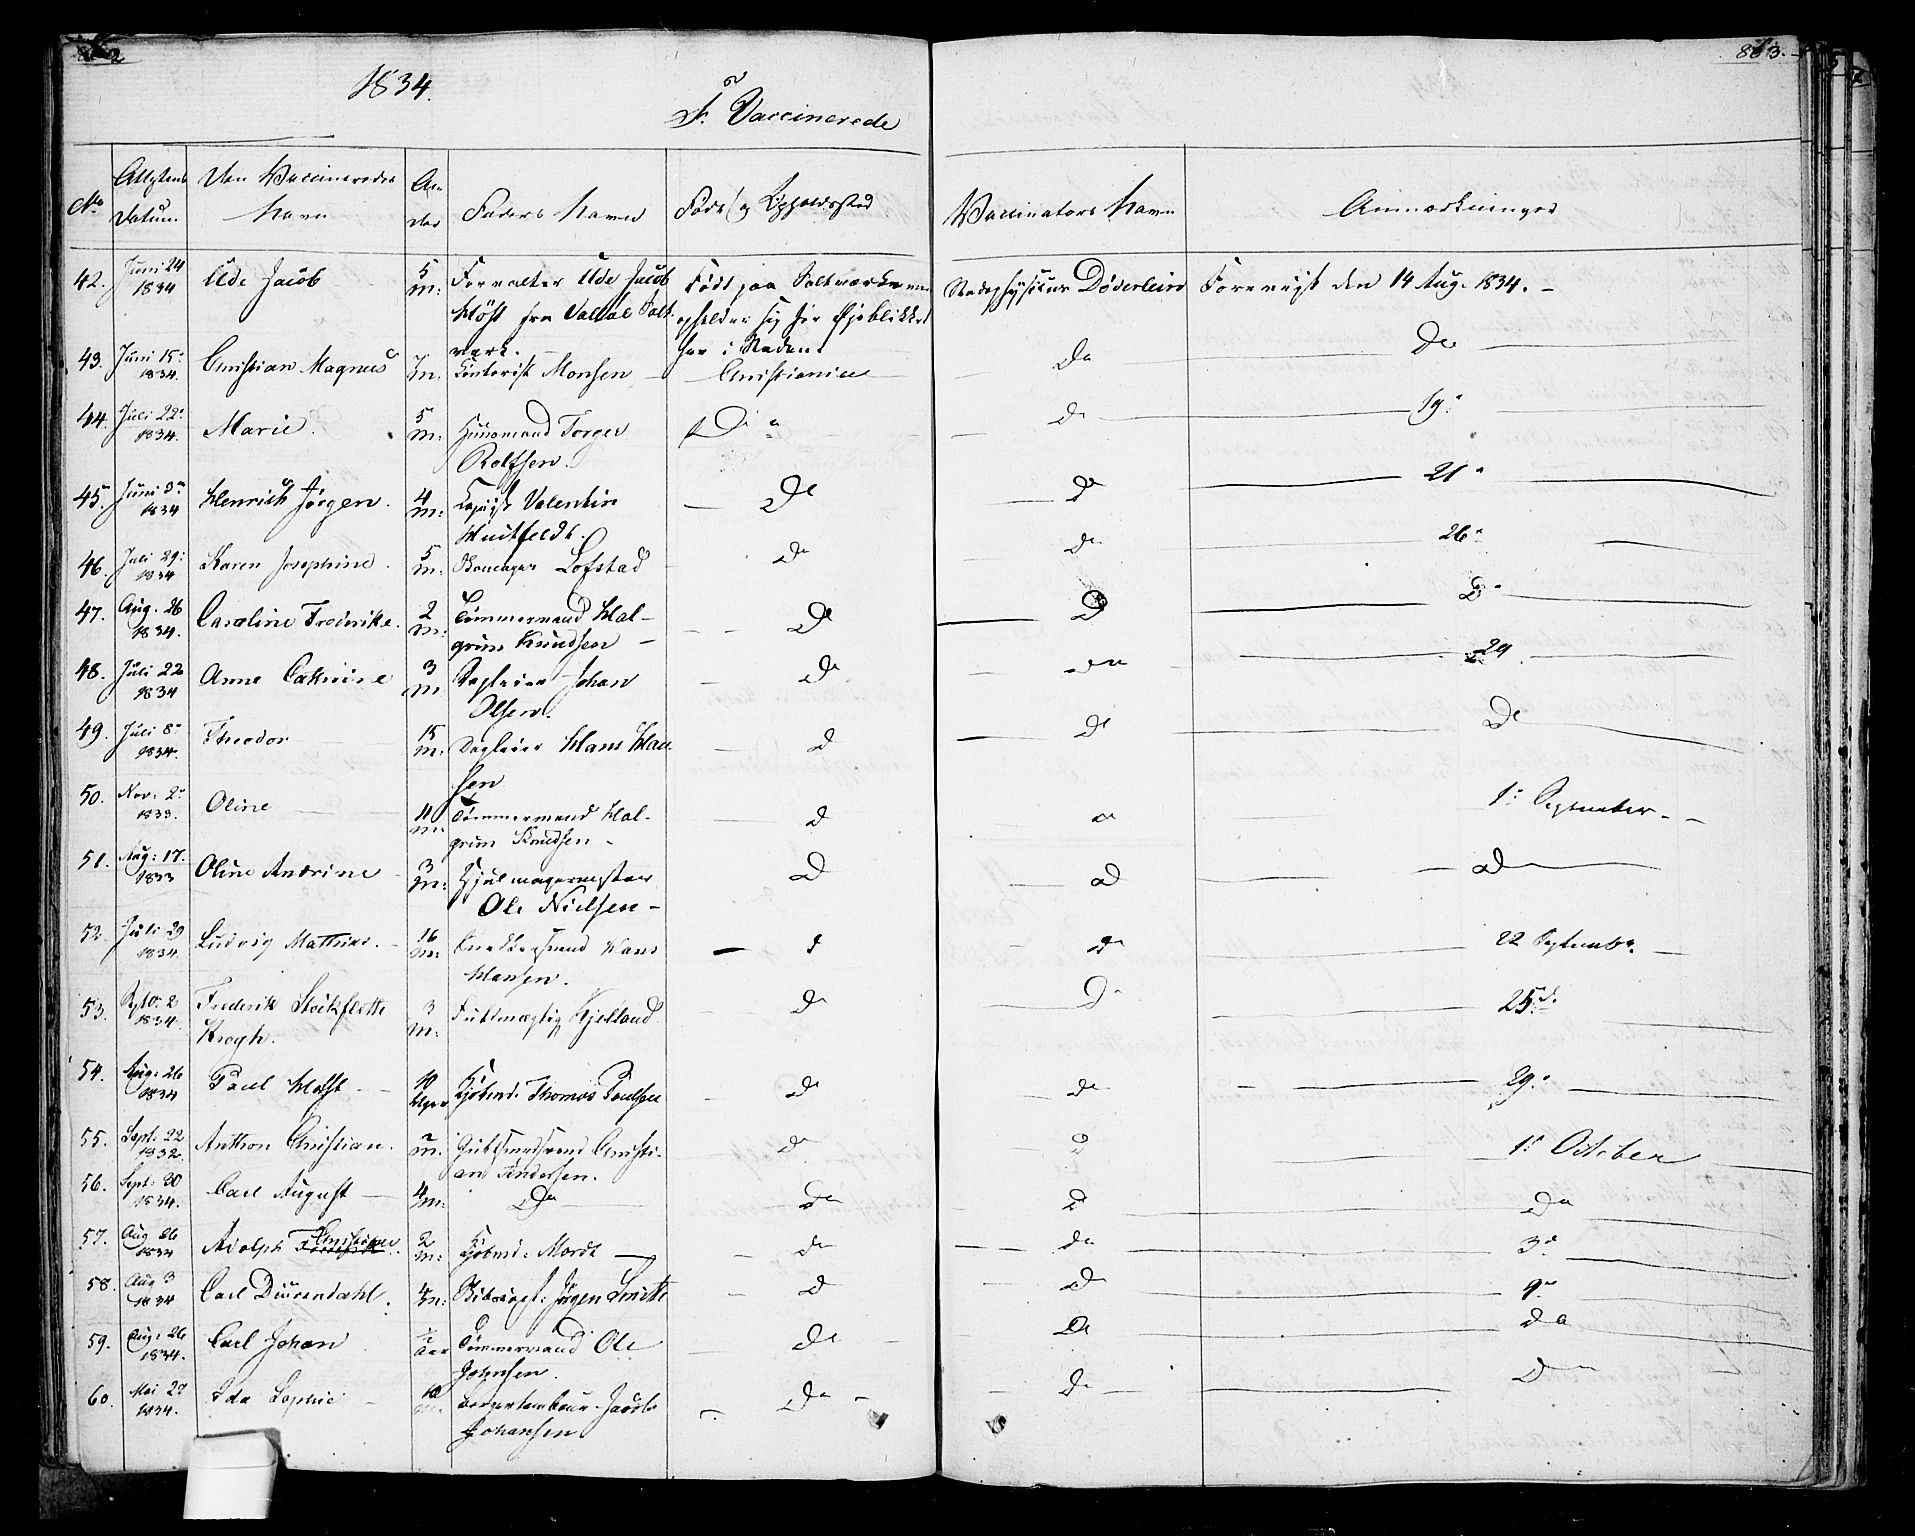 1834.
F. Vaccinerede
883.
No
Attestens Datum.
Den Vaccineredes Navn
Alder
Faders Navn
Føde- og Opholdssted
Vaccinators Navn
Anmærkninger
42. Juni 24 1834 Ude Jacob 5 m: Forvalter Ude Jacob Høst fra Valløe Saltværk. Født paa Saltværket men opholder sig for Øjeblikket her i Staden. Stadsphysicus Døderlein Foreviist den 14 Aug. 1834.
43. Juni 15 1834. Christian Magnus m: Contorist Monsen Christiania Do Do
44. Juli 22 1834. Marie. 5 m: Huusmand Torger Rolfsen. Do Do 19
45. Juni 3 1834 Henrich Jørgen. 4 m: Copiist Valentin Huitfeldt. Do Do 21
46. Juli 29 1834 Karen Josephine 5 m: Lofstad Do Do 26
47. Aug. 26 1834. Caroline Fredrikke. 2 m: Tømmermand Halgrim Knudsen Do Do Do
48. Juli 22 1834 Anne Cathrine 3 m Dagleier Johan Olsen. Do Do 29
49. Juli 8 1834. Theodor 15 m: Dagleier Hans Hansen Do Do Do
50. Nov. 2 1833. Oline 11 m: Tømmermand Halgrim Knudsen Do Do 1 September
51. Aug: 17. 1833 Oline Andrine 3 m: Hjulmagermester Ole Nielsen Do Do Do
52. Juli 29 1834. Ludvig Mathias. 16 m: Snedkersvend Hans Hansen. Do Do 22 September
53. Septbr. 2 1834. Frederik Stockfleth Krogh. 3 m: Fuldmægtig Kjelland Do Do 25
54. Aug: 26 1834 Paul Holst 10 Uger Kjøbmd. Thomas Paulsen Do Do 29
55. Sept. 22 1832. Anthon Christian. m. Guldsmedsvend Christian Andersen. Do Do 1 October
56. Sept. 20 1834. Carl August 4 m: Do Do Do Do
57. Aug 26 1834 Adolph Christian 2 m: Kjøbmd: Mordt Do Do 3
58. Aug 3 1834 Carl Duurendahl. 4 m: Jørgen Smith Do Do 9
59. Aug: 26 1834. Carl Johan 1/2 Aar Tømmermand Ole Johnsen. Do Do Do
60. Mai 27 1834. Ida Sophie 10 m. Borgertambour Jacob Johansen Do Do Do